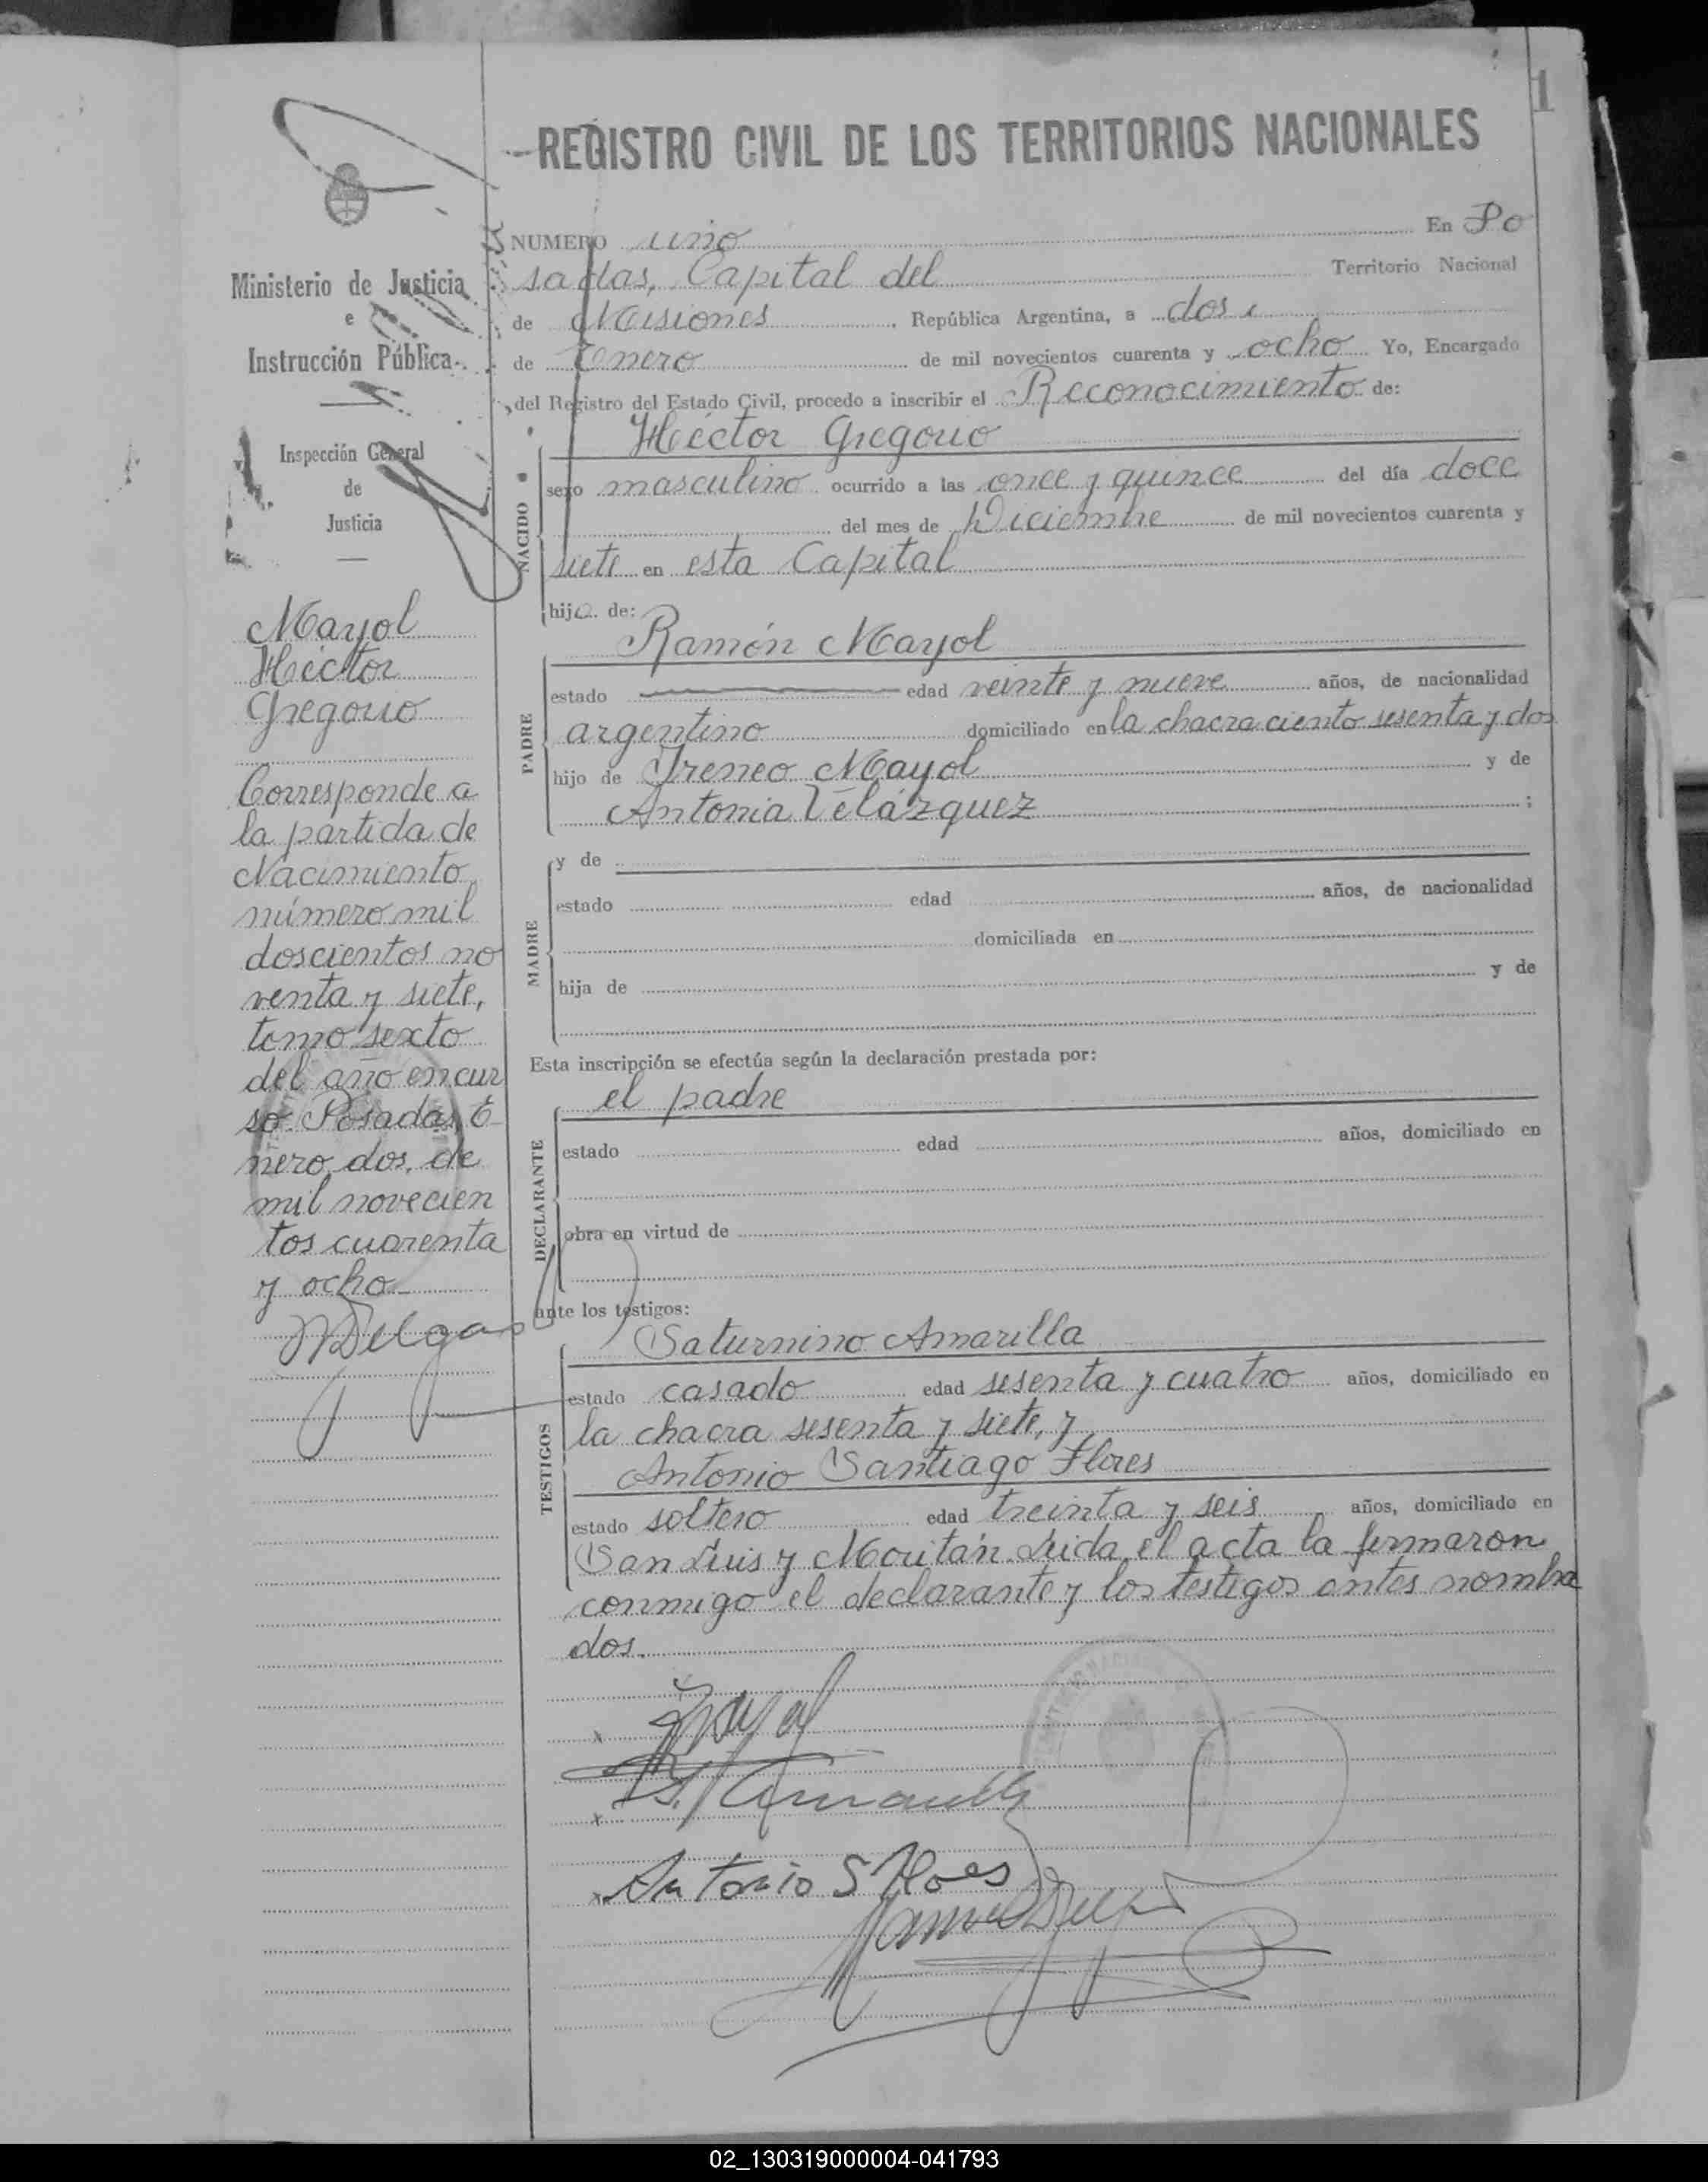 1
REGISTRO CIVIL DE LOS TERRITORIOS NACIONALES
Ministerio de Justicia
e
Instrucción Pública
Inspección General
de
Justicia
Mayol
Héctor
Gregorio
Corresponde a
la partida de
Nacimiento
número mil
doscientos no
venta y siete,
tomo sexto
del año en cur
so. Posadas, E
nero dos, de
mil novecien
tos cuarenta
y ocho
NUMERO uno En Po
sadas, Capital del Territorio Nacional
de Misiones, República Argentina, a dos
de Enero de mil novecientos cuarenta y ocho Yo, Encargado
del Registro del Estado Civil, procedo a inscribir el Reconocimiento de:
NACIDO
Héctor Gregorio
sexo masculino ocurrido a las once y quince del día doce
del mes de Diciembre de mil novecientos cuarenta y
siete en esta Capital
hijo de:
PADRE
Ramón Mayol
estado edad veinte y nueve años, de nacionalidad
argentino domiciliado en la chacra ciento sesenta y dos
hijo de Ireneo Mayol y de
Antonia Velázquez ;
MADRE
y de
estado edad años, de nacionalidad
domiciliada en
hija de y de
Esta inscripción se efectúa según la declaración prestada por:
DECLARANTE
el padre
estado edad años, domiciliado en
obra en virtud de
ante los testigos:
TESTIGOS
Saturnino Amarilla
estado casado edad sesenta y cuatro años, domiciliado en
la chacra sesenta y siete, y
Antonio Santiago Flores
estado soltero edad treinta y seis años, domiciliado en
San Luis y Moritán. Leida el acta la firmaron
conmigo el declarante y los testigos antes nombra
dos.
Mayol
S. Amarilla
Antonio S Flores
02_130319000004-041793